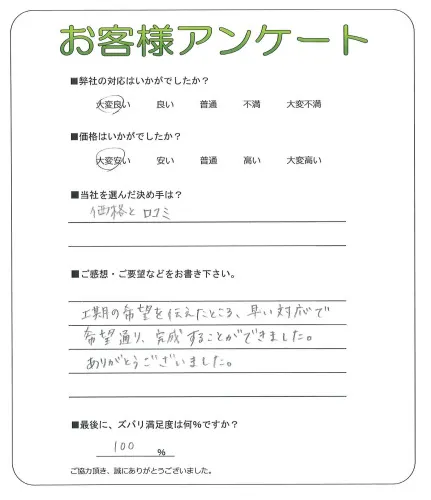 お客様アンケート
■弊社の対応はいかがでしたか?
大変良い 良い 普通 不満 大変不満
■価格はいかがでしたか?
大変安い 安い 普通 高い 大変高い
■当社を選んだ決め手は?
価格と口コミ
■ご感想・ご要望などをお書き下さい。
工期の希望を伝えたところ、早い対応で
希望通り、完成することができました。
ありがとうございました。
■最後に、ズバリ満足度は何%ですか?
100 %
ご協力頂き、誠にありがとうございました。